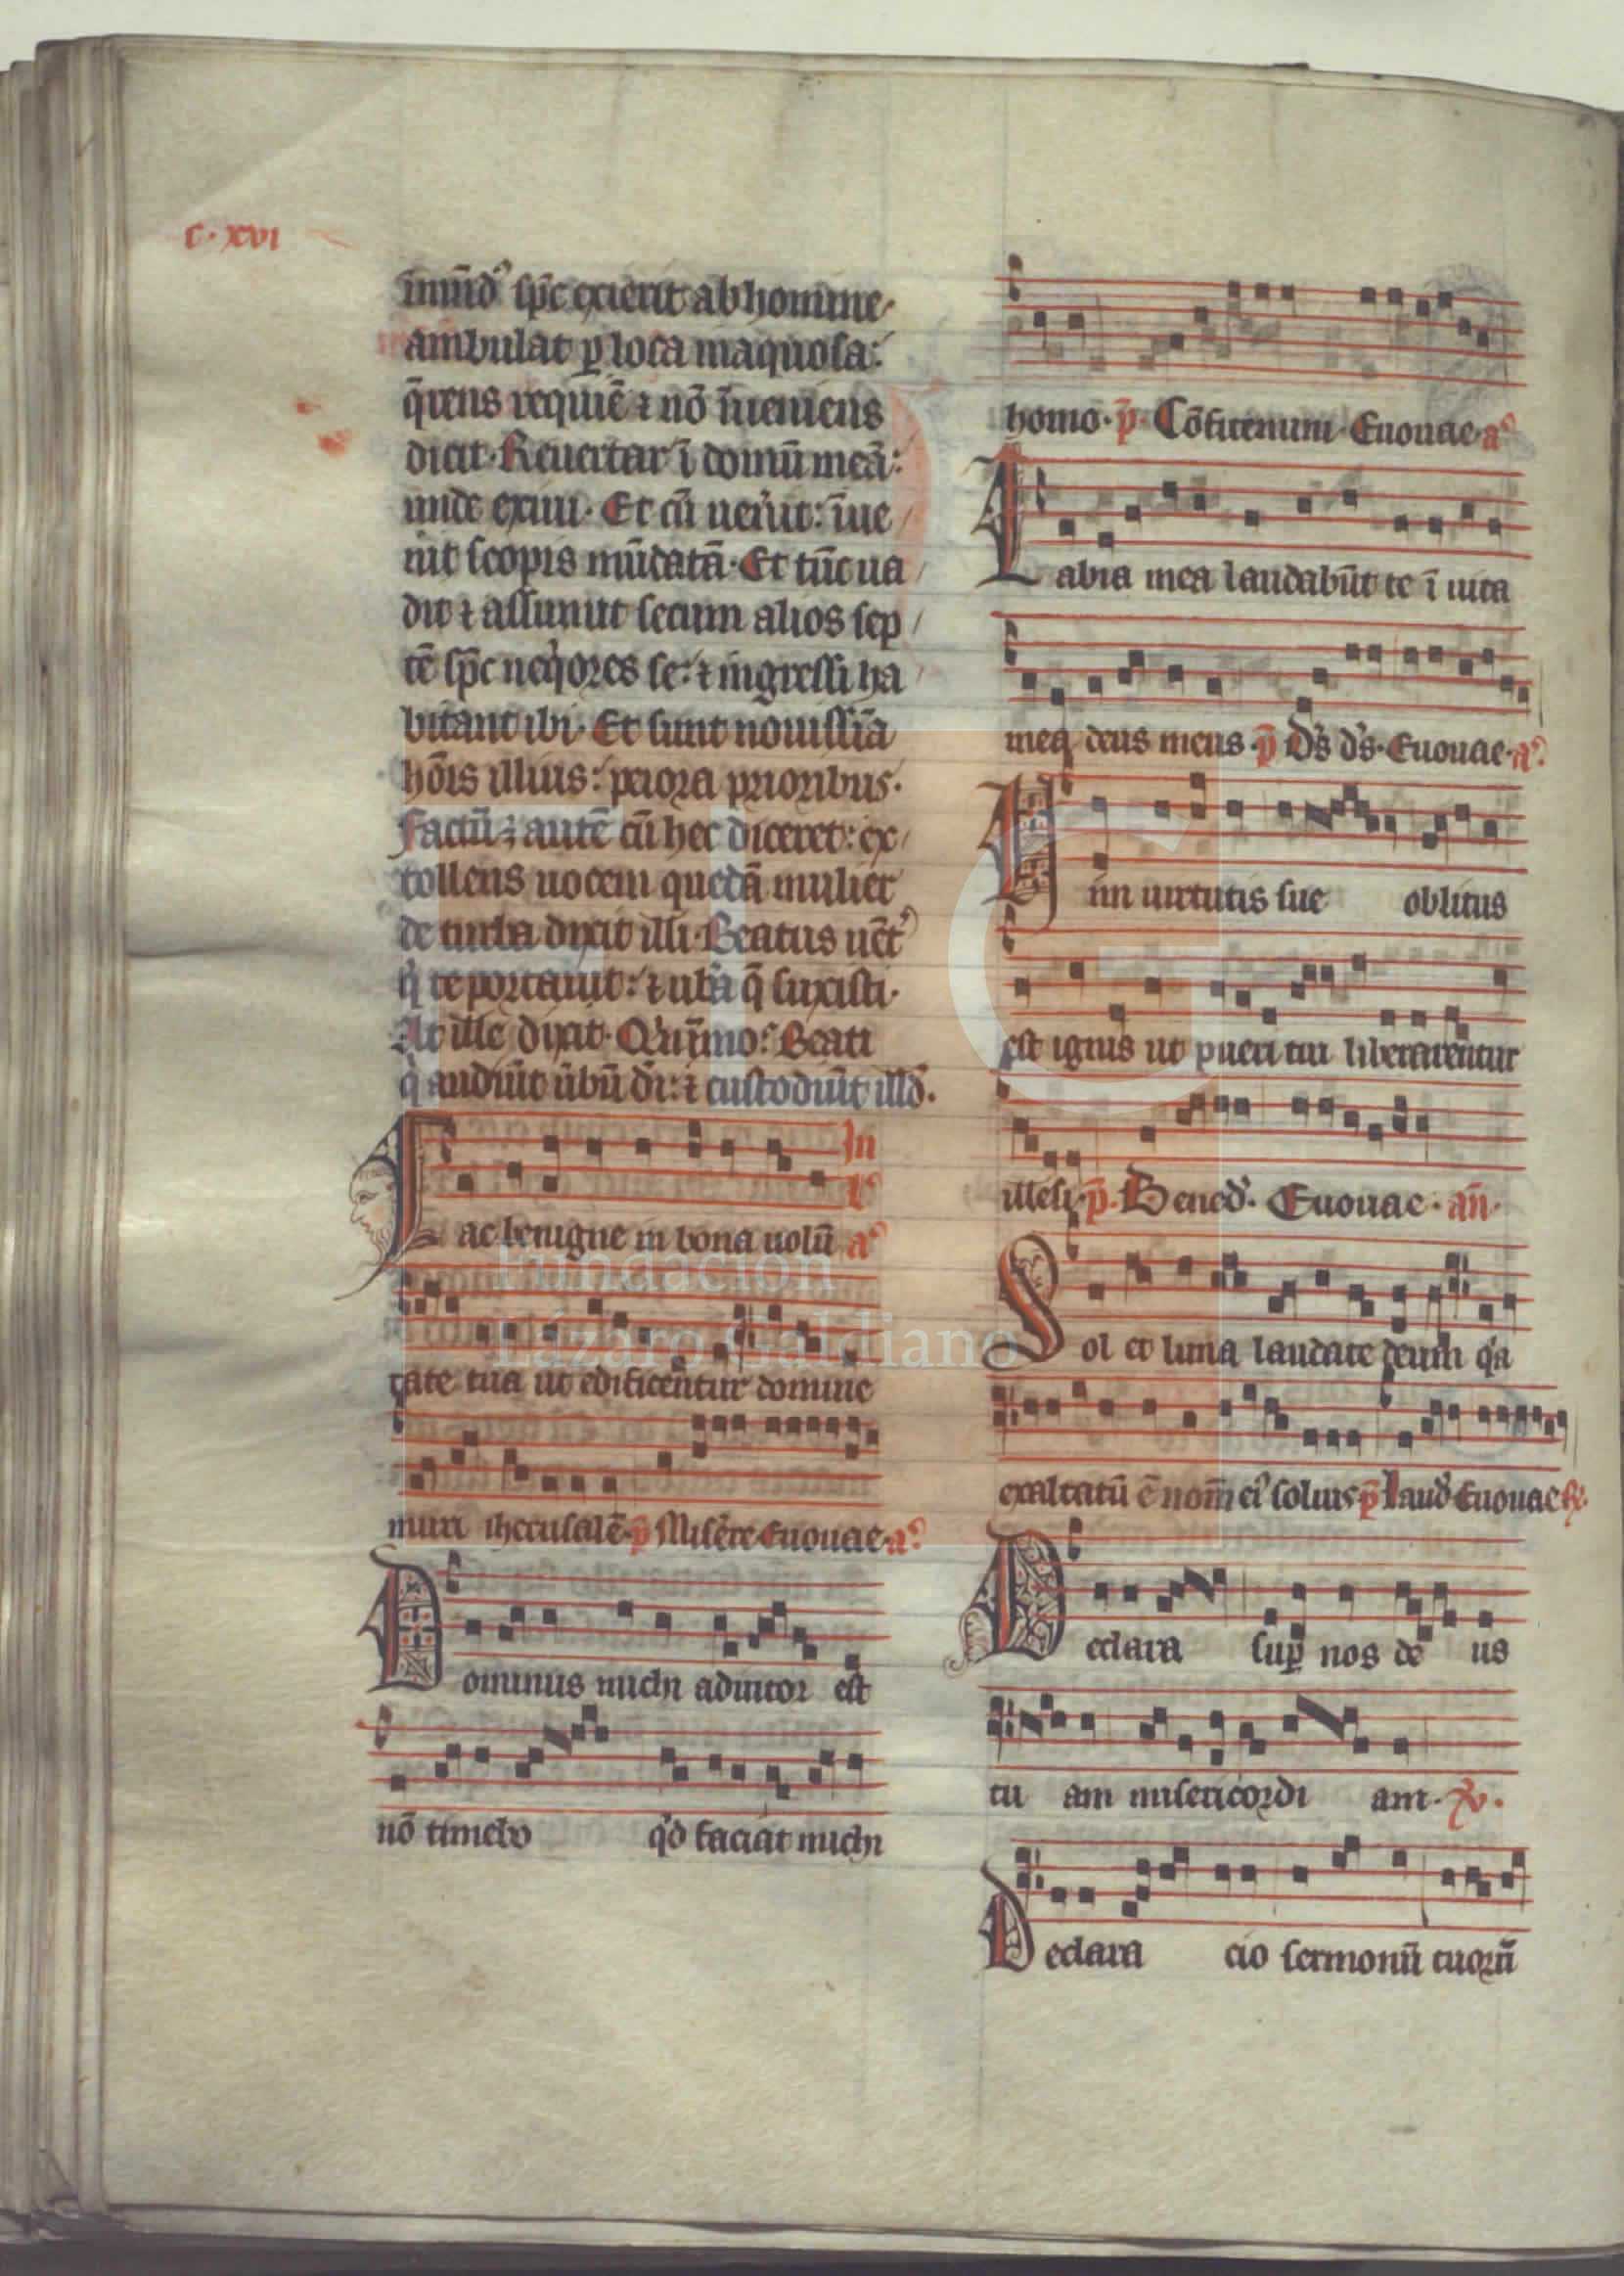 c. xvi
inmūdꝰ sp̄c exierit ab homine.
ambulat ꝑ loca inaquosa:
q̄rens requiē ⁊ nō īueniens
dicit. Reuertar ī domū meā:
unde exiui. Et cū uen̄it: īue/
nit scopis mūdatā. Et tūc ua/
dit ⁊ assumit secum alios sep/
tē sp̄c neq̇ores se: ⁊ ingressi ha/
bitant ibi. Et sunt nouissīa
hōis illius: peiora prioribus.
Factū ē autē cū hec diceret: ex/
tollens uocem quedā mulier
de turba dixit illi. Beatus uēt̾
q̇ te portauit: ⁊ ub̄a q̄ suxisti.
At ille dixit. Quīmo: Beati
q̇ audiūt ūbū dī: ⁊ custodiūt illd̄.
In
lꝰ
Fac benigne in bona uolū aꝰ
tate tua ut edificentur domine
muri iherusalē. p̄ Misēre. Euouae. aꝰ
Dominus michi adiutor est
nō timebo qͥd faciat michi
homo. p̄. Cōfitemini. Euouae. aꝰ
Labia mea laudabūt te ī uita
mea deus meus. p̄ D̄s d̄s. Euouae. aꝰ
Uim uirtutis sue oblitus
est ignis ut pueri tui liberarentur
illesi. p̄. Bened̄. Euouae. an̄.
Sol et luna laudate deum qͥa
exaltatū ē nom̄ eiꝰ soluis p̄ Laud̄ Euouae ℟.
Declara suꝑ nos de us
tu am misericordi am. ℣.
Declara cio sermonū tuorū
Fundación
Lázaro Galdiano